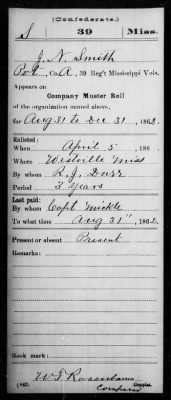 (Confederate.)
S 39 Miss.
J. N. Smith
Co. A, 39 Reg't Mississippi Vols.
Appears on
Company Muster Roll
of the organization named above,
for Aug 31 to Dec 31, 1862.
Enlisted:
When April 5, 186
Where Westville Miss
By whom R. J. Durr
Period 3 Years
Last paid:
By whom Capt Mickle
To what time Aug 31", 1862.
Present or absent Present
Remarks:
Book mark:
(642)
Copyist.